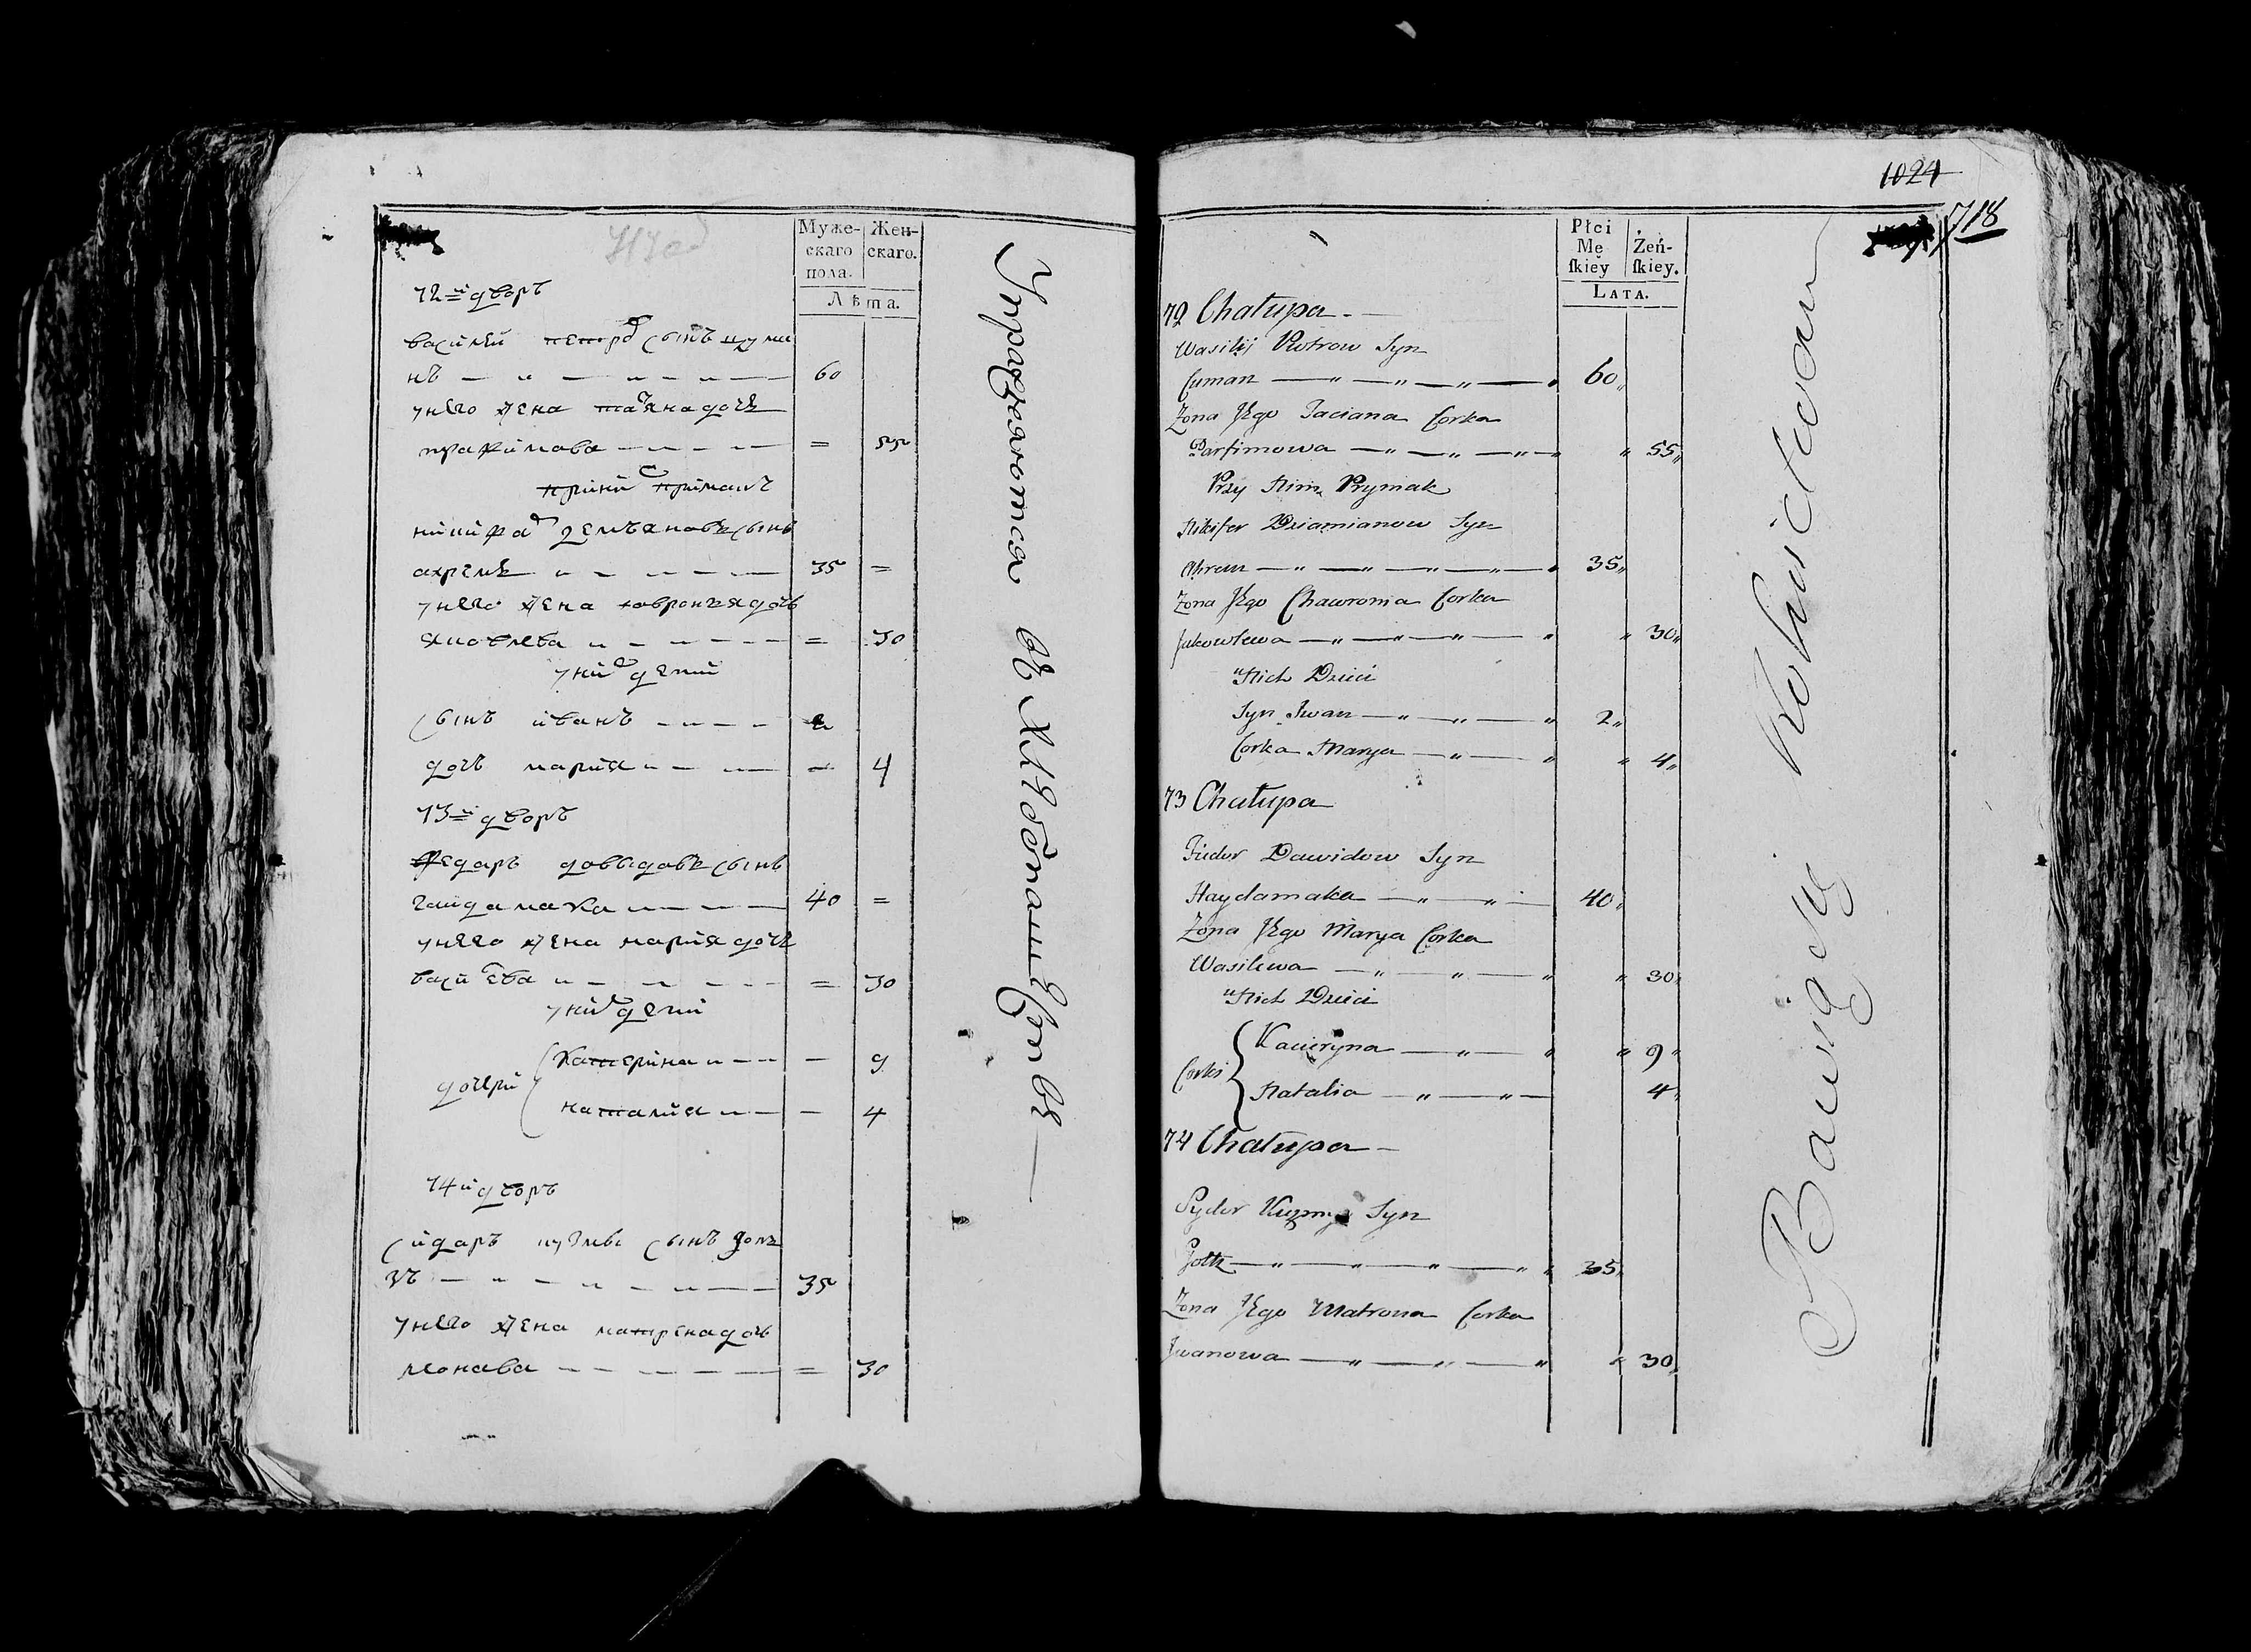 Муже-
скаго
пола.
Жен-
скаго.
Лѣта.
72й дворъ
василей петров сынъ цума
нъ 60
унего жена татяна дочь
прафимова = 55
при ни приманъ
никифа демъяновъ сынъ
ахремъ 35 =
унего жена ховронъя дочь
яковлева = 30
у них дети
сынъ иванъ 2
дочь мария 4
73й дворъ
федаръ давыдовъ сынъ
гайдамака 40 =
унего жена мария дочь
васильева = 30
у них дети
дочери
катерина 9
наталия 4
74й дворъ
сидаръ кузмы сынъ голь
зъ 35
унего жена матрена дочь
= 30
Упражняются въ хлѣбопашествѣ
1024
718
Płci
Mę
ſkiey
Żeń-
ſkiey.
LATA.
72 Chałupa
Wasilij Piotrow Syn
Cuman 60
Zona Jego Taciana Corka
Parfimowa 55
Przy Nim Prymak
Nikifor Dziamianow Syn
Ahrem 35
Zona Jego Chawronia Corka
Jakowlewa 30
u Nich Dzieci
Syn Jwan 2
Corka Marya 4
73 Chałupa
Fiedor Dawidow Syn
Haydamaka 40
Zona Jego Marya Corka
Wasilewa 30
u Nich Dzieci
Corki
Kacieryna 9
Natalia 4
74 Chałupa
Sydor Kuzmy Syn
Goltz 35
Zona Jego Matrona Corka
Jwanowa 30
Bawią się Rolnictwem